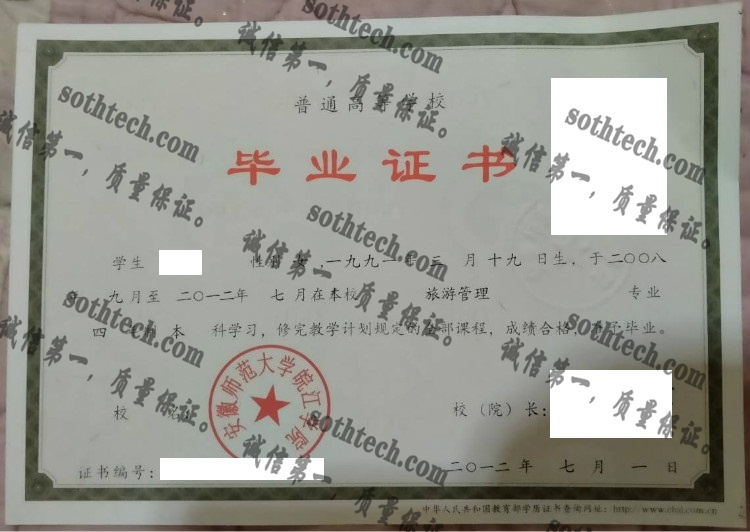 sothtech.com
诚信第一，质量保证。
sothtech.com
诚信第一，质量保证。
sothtech.com
诚信第一，质量保证。
普通高等学校
毕业证书
学生 性别 女 一九九一年三 月十九 日生，于二〇〇八
年 九月至 二〇一二年 七 月在本校 旅游管理 专业
四 年制 本 科学习，修完教学计划规定的全部课程，成绩合格，准予毕业。
sothtech.com
诚信第一，质量保证。
sothtech.com
诚信第一，质量保证。
sothtech.com
诚信第一，质量保证。
安徽师范大学皖江学院
校 名： 校（院）长：
证书编号： 二〇一二年 七 月 一 日
sothtech.com
诚信第一，质量保证。
中华人民共和国教育部学历证书查询网址：http://www.chsi.com.cn